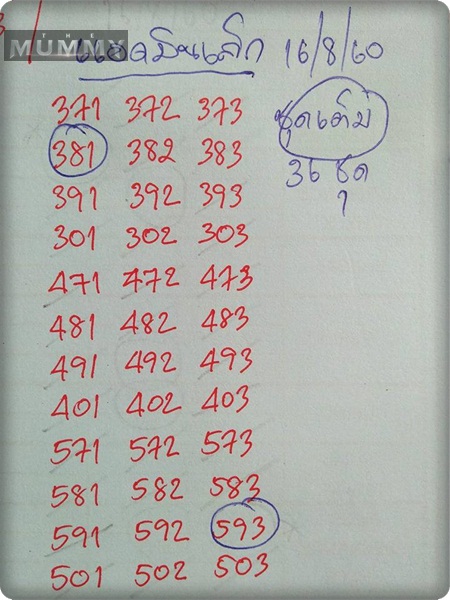 MUMMY
แอดมินเล็ก 16/8/60
371 372 373 ชุดเต็ม
381 382 383 36 ชุด
391 392 393
301 302 303
471 472 473
481 482 483
491 492 493
401 402 403
571 572 573
581 582 583
591 592 593
501 502 503